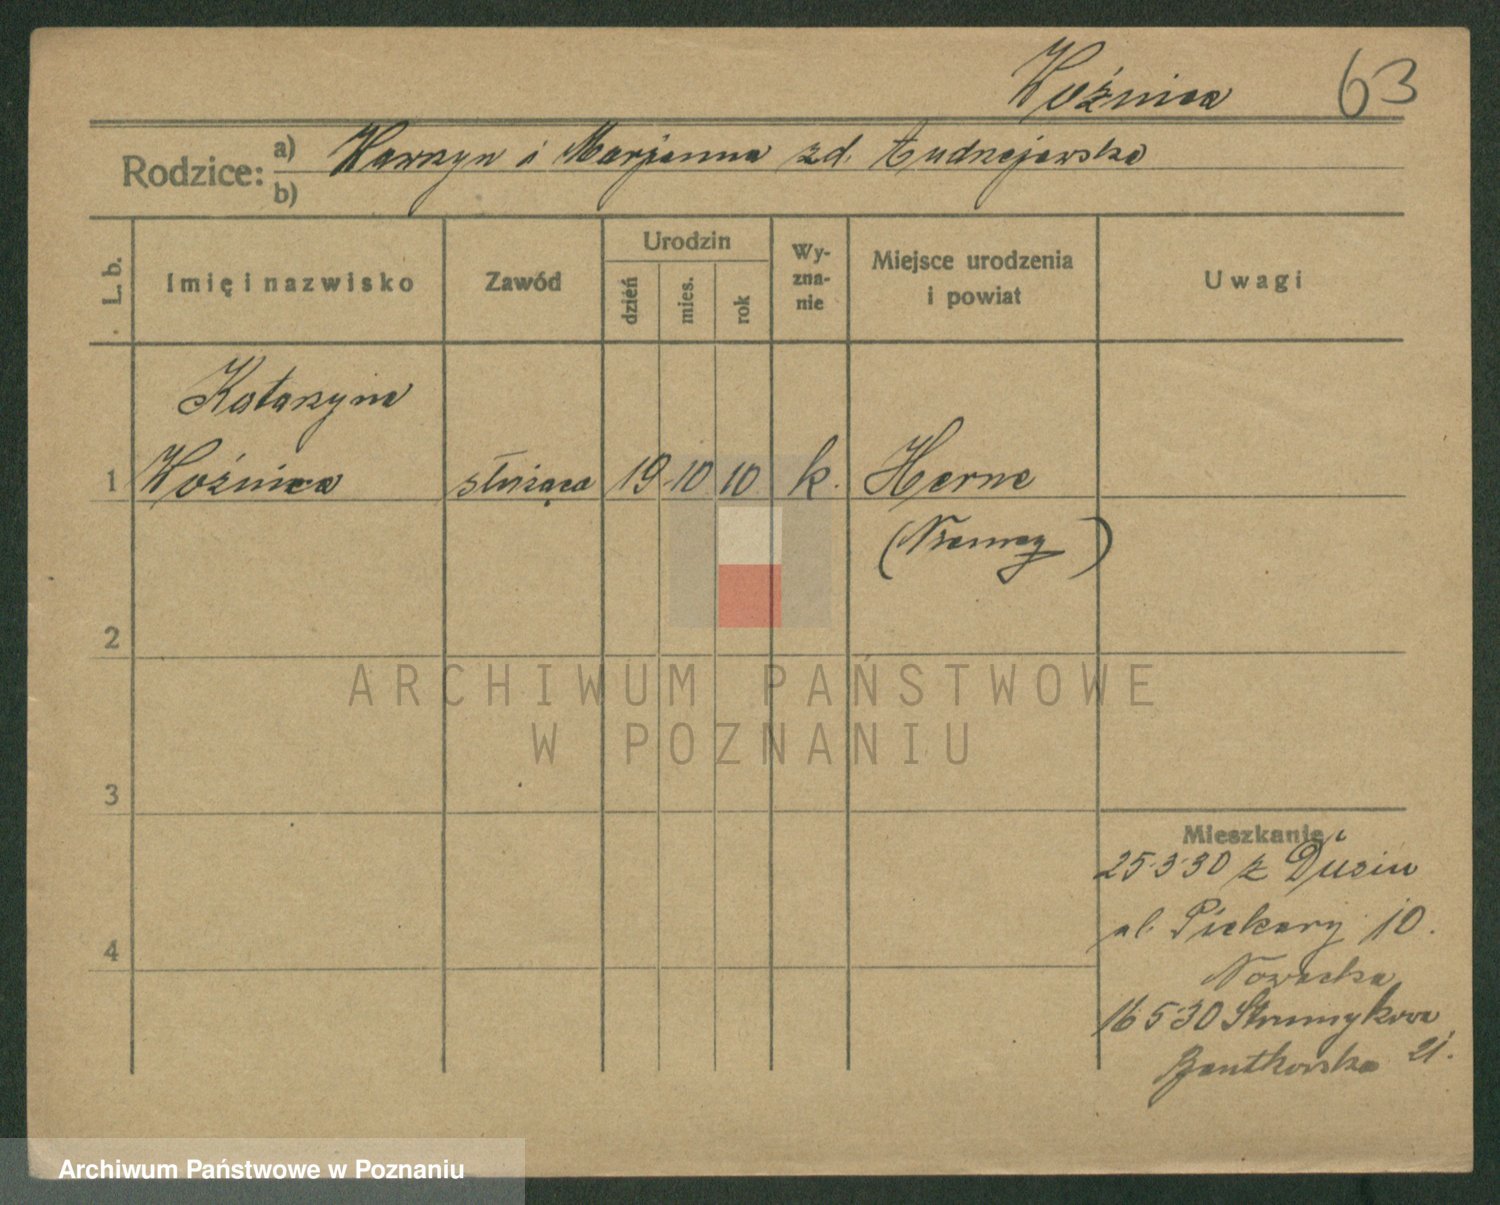 Woźnica 63
Rodzice: a) Wawrzyn i Marjanna zd. Andrzejewska
b)
L. b. Imię i nazwisko Zawód Urodzin dzień mies. rok Wy-zna-nie Miejsce urodzenia i powiat Uwagi
Katarzyna
1 Woźnica służąca 19 10 10 k. Herne
(Niemcy)
2
ARCHIWUM PAŃSTWOWE
W POZNANIU
3
Mieszkanie
25.3.30 z Dusin
ul. Piekary 10.
Nowacka
16 5 30 Strumykowa
21.
4
Archiwum Państwowe w Poznaniu